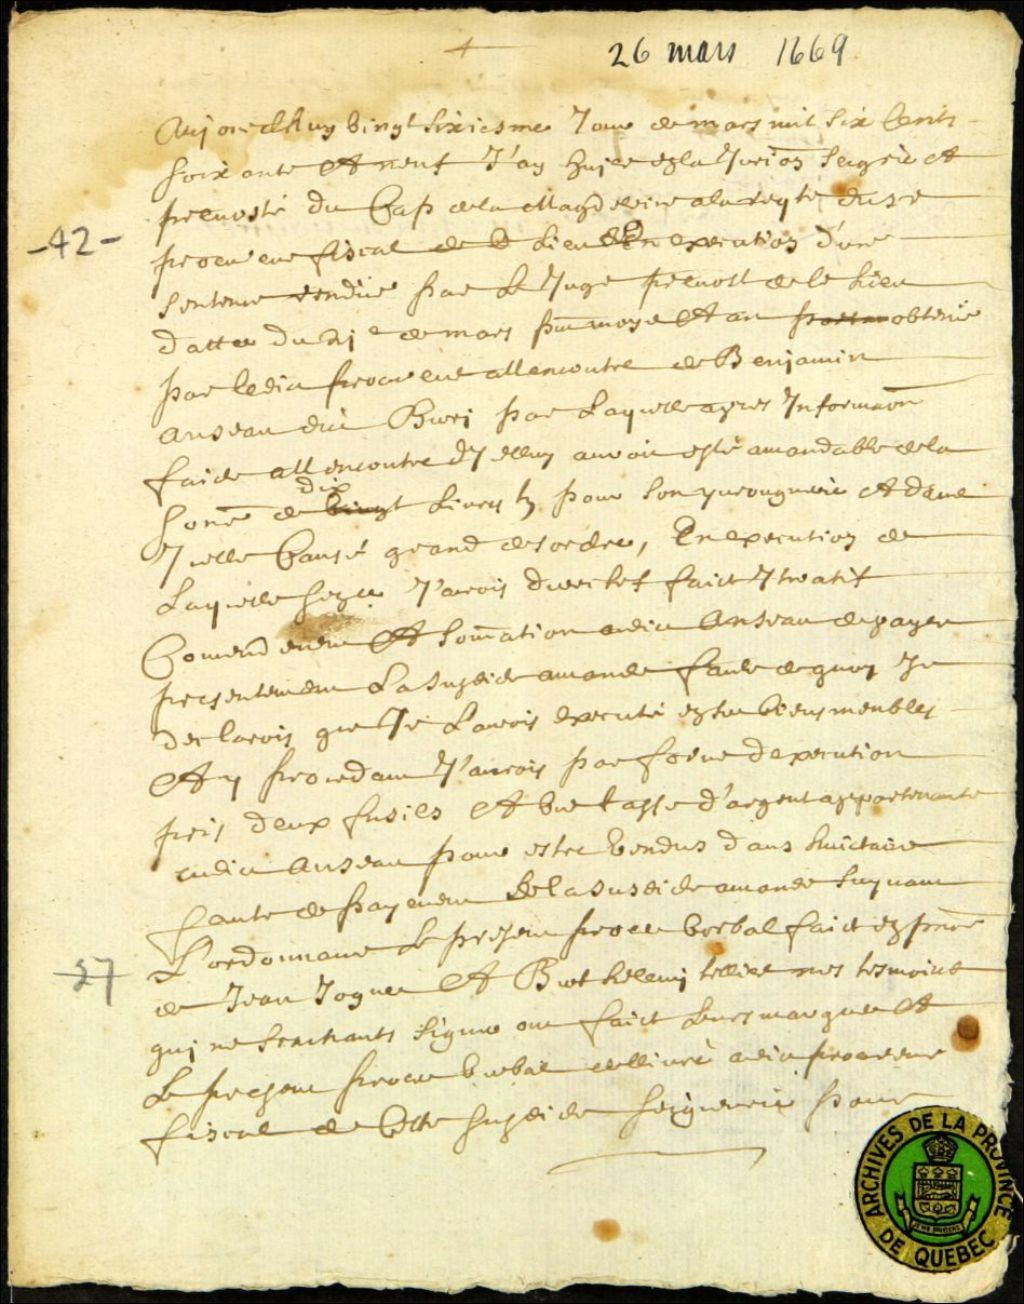 26 mars 1669
Aujourdhuy vingt sixiesme Jour de mars mil six Cents
soixante et neuf J'ay en la Seigrie et
prevosté du Cap de la Magdeleine a la reqte du sr
-42-
procureur fiscal de ce Lieu En execution d'une
sentence rendüe par Le Juge prevost de ce Lieu
datté du 21e de mars moys et an obtenüe
par ledict procureur allencontre de Benjamin
anseau dict Berri par Laquelle apres Information
faicte allencontre d'Icelluy auroit esté amandable de la
some de dix Livres pour son yvrougnerie et dans
Icelle Causé grand desordre, En execution de
Laquelle J'aurois derechef faict Iteratif
Comendement et somation audict Anseau de payer
presentement La susdicte amande faulte de quoy Je
declarois que Je Laurois executé en ses biens meubles
Et y procedant J'aurois par forme d'execution
pris deux fusils et une tasse d'argent appartenante
audict Anseau pour estre vendus dans huictaine
faute de payement de la susdicte amande suyvant
L'ordonnance Le present proces verbal faict en
-27
de Jean et Berthelemy tellier mes tesmoins
qui ne sachants signer ont faict Leurs marques et
Le present proces verbal dellivré audict procureur
fiscal de Cette susdicte seigneurie pour
ARCHIVES DE LA PROVINCE DE QUEBEC